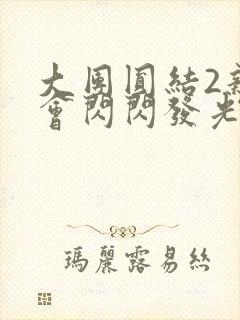 大周圓結2
會閃閃發光
瑪麗露易絲